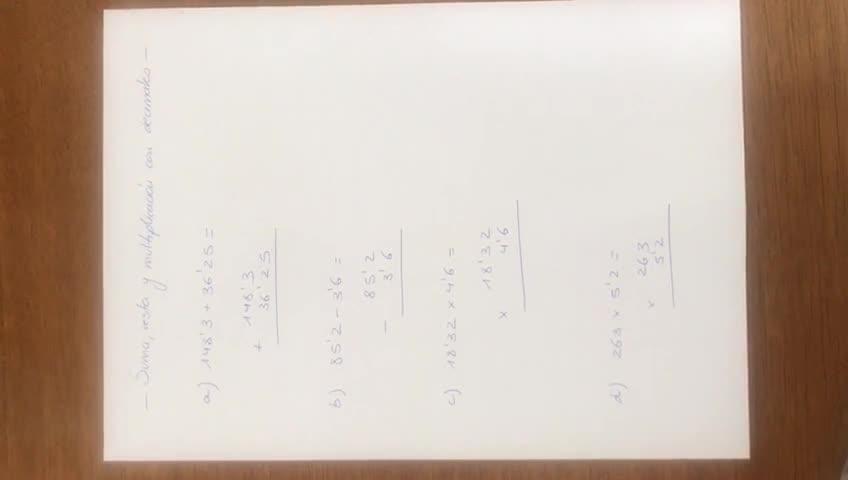 - Suma, resta y multiplicación con decimales -
a) 148'3 + 36'25 =
148'3
+ 36'25
b) 85'2 - 3'6 =
85'2
- 3'6
c) 18'32 x 4'6 =
18'32
x 4'6
d) 263 x 5'2 =
263
x 5'2